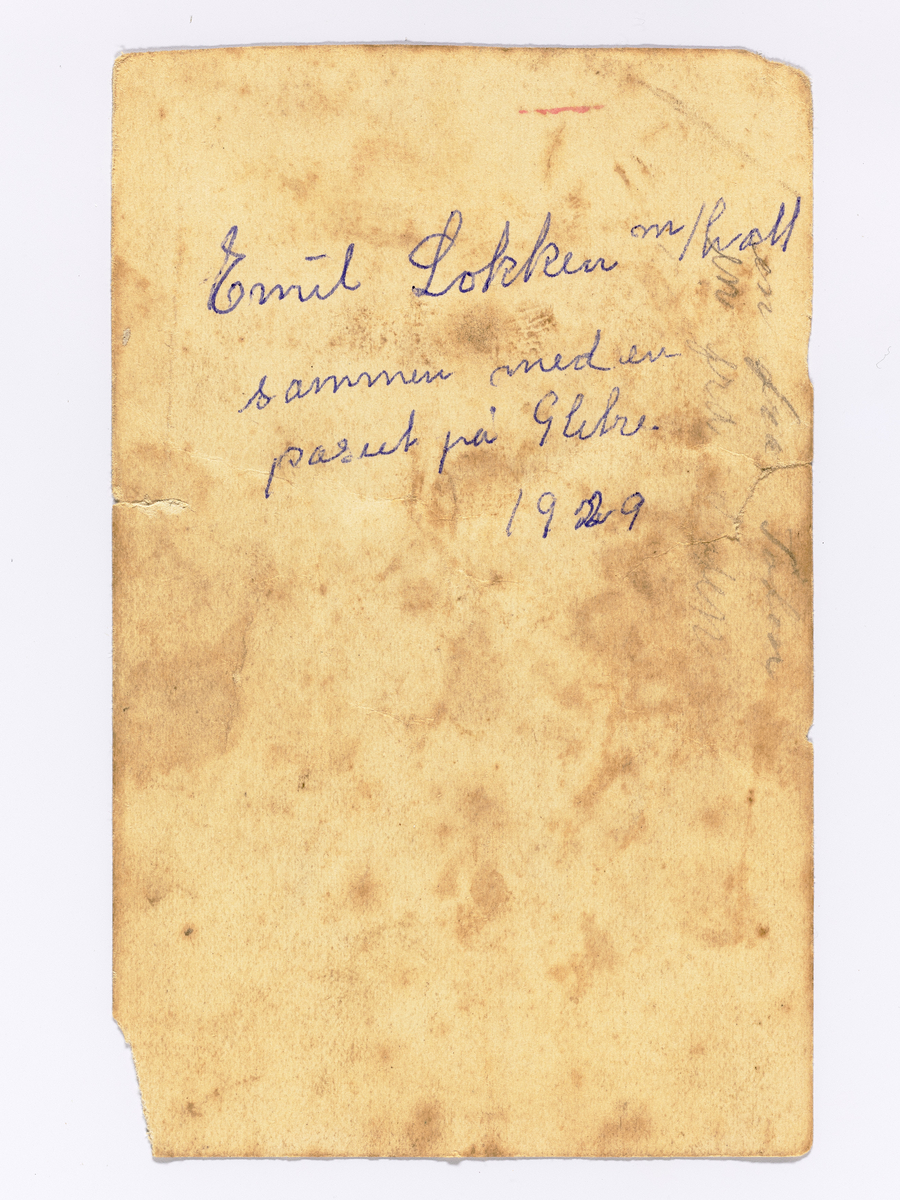 Emil Lokken m/hatt
sammen med en
pasient på Glitre.
1929
en fra Toten